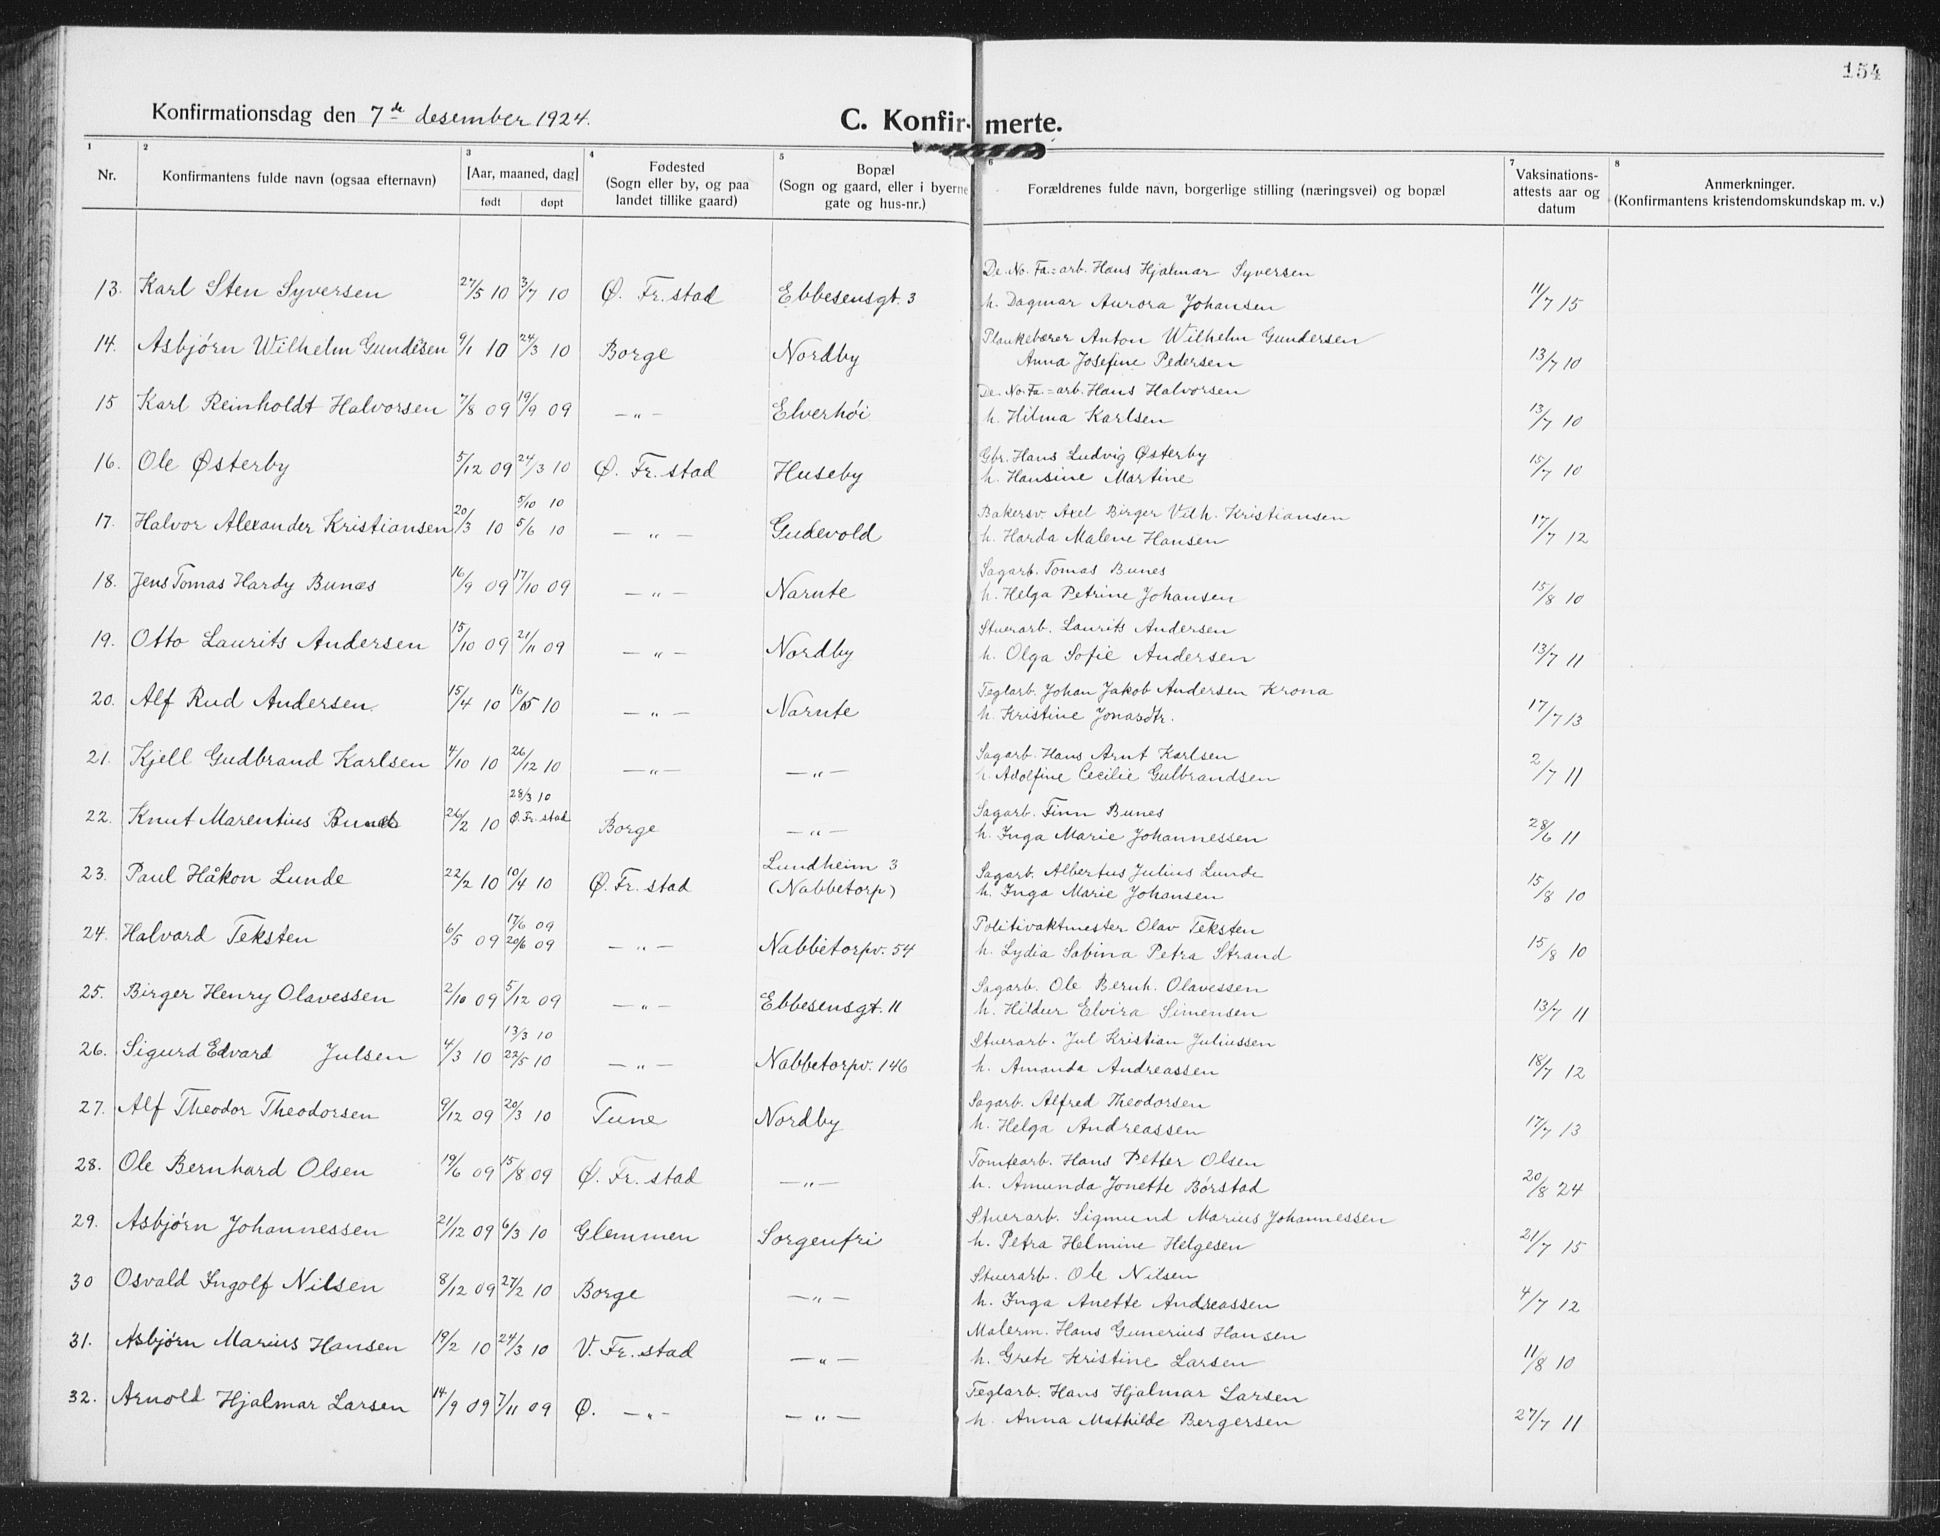 154
Konfirmationsdag den 7de desember 1924.
C. Konfirmerte.
1 2 3 4 5 6 7 8
Nr. Konfirmantens fulde navn (ogsaa efternavn) [Aar, maaned, dag] født døpt Fødested (Sogn eller by, og paa landet tillike gaard) Bopæl (Sogn og gaard, eller i byerne gate og hus-nr.) Forældrenes fulde navn, borgerlige stilling (næringsvei) og bopæl Vaksinations-attests aar og datum Anmerkninger. (Konfirmantens kristendomskundskap m. v.)
De. No. Fa.=arb. Hans Hjalmar Syversen
13. Karl Sten Syversen 27/5 10 3/7 10 Ø. Fr.stad Ebbesensgt. 3 h. Dagmar Aurora Johansen 11/7 15
Plankebærer Anton Wilhelm Gundersen
14. Asbjørn Wilhelm Gundersen 9/1 10 24/3 10 Borge Nordby Anna Josefine Pedersen 13/7 10
De. No. Fa.=arb. Hans Halvorsen
15 Karl Reinholdt Halvorsen 7/8 09 19/9 09 — " — Elverhøi h. Hilma Karlsen 13/7 10
Gbr. Hans Ludvig Østerby
16. Ole Østerby 5/12 09 24/3 10 Ø. Fr. stad Huseby h. Hansine Martine 15/7 10
5/10 10 Bakersv. Axel Birger Vilh. Kristiansen
17. Halvor Alexander Kristiansen 20/3 10 5/6 10 — " — Gudevold h. Harda Malene Hansen 17/7 12
Sagarb. Tomas Bunes
18. Jens Tomas Hardy Bunæs 16/9 09 17/10 09 — " — Narnte h. Helga Petrine Johansen 15/8 10
Stuerarb. Laurits Andersen
19. Otto Laurits Andersen 15/10 09 21/11 09 — " — Nordby h. Olga Sofie Andersen 13/7 11
Teglarb. Johan Jakob Andersen Krona
20. Alf Rud Andersen 15/4 10 16/5 10 — " — Narnte h. Kristine Jonasdtr. 17/7 13
Sagarb. Hans Arnt Karlsen
21. Kjell Gudbrand Karlsen 4/10 10 26/12 10 — " — — " — h. Adolfine Cecilie Gulbrandsen 2/7 11
28/3 10 Sagarb. Finn Bunes
22. Knut Marentius Bunæs 26/2 10 Ø. Fr. stad Borge — " — h. Inga Marie Johannessen 28/6 11
Lundheim 3 Sagarb. Albertus Julius Lunde
23. Paul Håkon Lunde 22/2 10 10/4 10 Ø. Fr. stad (Nabbetorp) h. Inga Marie Johansen 15/8 10
17/6 09 Politivaktmester Olav Teksten
24. Halvard Teksten 6/5 09 20/6 09 — " — Nabbetorpv. 54 h. Lydia Sabina Petra Strand 15/8 10
Sagarb. Ole Bernh. Olavessen
25. Birger Henry Olavessen 2/10 09 5/12 09 — " — Ebbesensgt. 11 h. Hildur Elvira Simensen 13/7 11
13/3 10 Stuerarb. Jul Kristian Juliussen
26. Sigurd Edvard Julsen 4/3 10 22/5 10 — " — Nabbetorpv. 146 h. Amanda Andreassen 18/7 12
Sagarb. Alfred Theodorsen
27. Alf Theodor Theodorsen 9/12 09 20/3 10 Tune Nordby h. Helga Andreassen 17/7 13
Tomtearb. Hans Petter Olsen
28. Ole Bernhard Olsen 19/6 09 15/8 09 Ø. Fr. stad — " — h. Amunda Jonette Børstad 20/8 24
Stuerarb. Sigmund Marius Johannessen
29. Asbjørn Johannessen 21/12 09 6/3 10 Glemmen Sorgenfri h. Petra Helmine Helgesen 21/7 15
Stuerarb. Ole Nilsen
30 Osvald Ingolf Nilsen 8/12 09 27/2 10 Borge — " — h. Inga Anette Andreassen 4/7 12
Malerm. Hans Gunerius Hansen
31. Asbjørn Marius Hansen 19/2 10 24/3 10 V. Fr. stad — " — h. Grete Kristine Larsen 11/8 10
Teglarb. Hans Hjalmar Larsen
32. Arnold Hjalmar Larsen 14/9 09 7/11 09 Ø. — " — — " — h. Anna Mathilde Bergersen 27/7 11